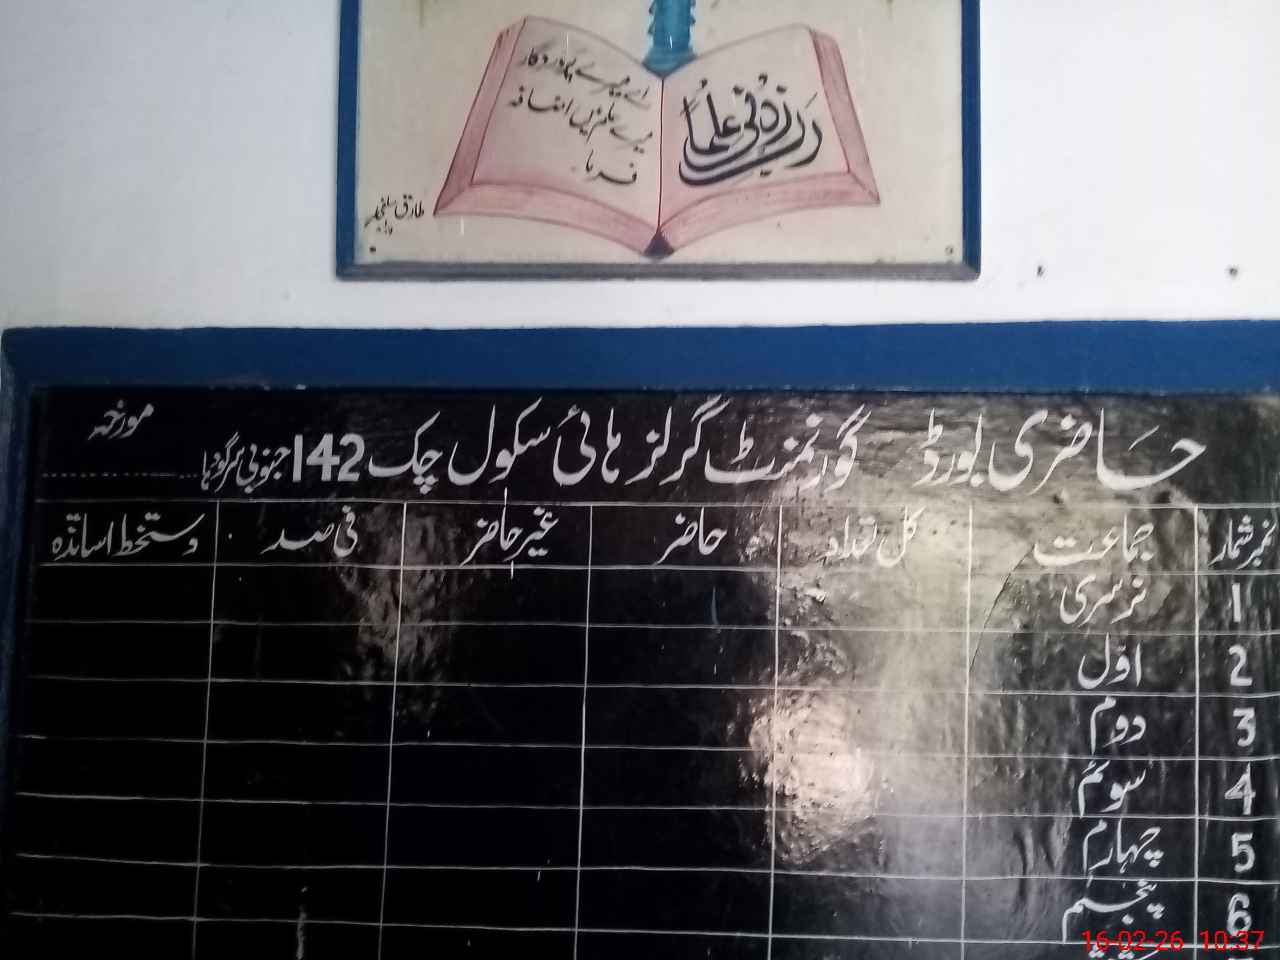 رب زدنی علماً
اے میرے پروردگار
میرے علم میں اضافہ
فرما
طارق سلیم
حاضری بورڈ گورنمنٹ گرلز ہائی سکول چک 142 جنوبی سرگودھا
مورخہ
نمبر شمار جماعت کل تعداد حاضر غیر حاضر فی صد دستخط اساتذہ
1 نرسری
2 اوّل
3 دوم
4 سوئم
5 چہارم
6 پنجم
16-02-26 10:37